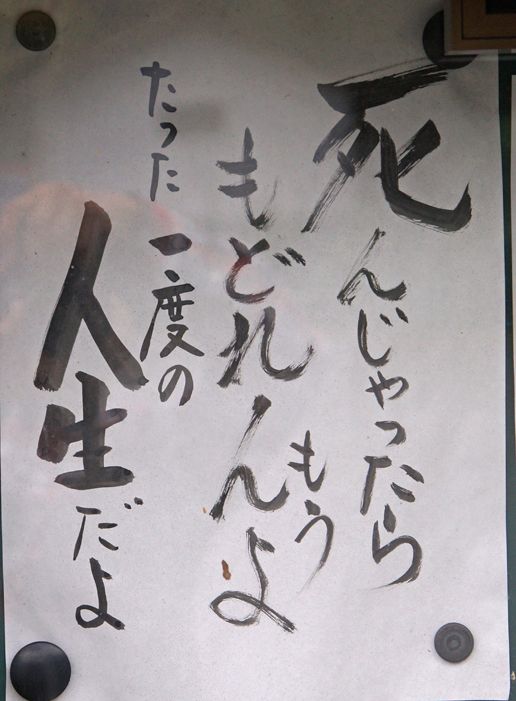 死んじゃったら
もう
もどれんよ
たった一度の
人生だよ